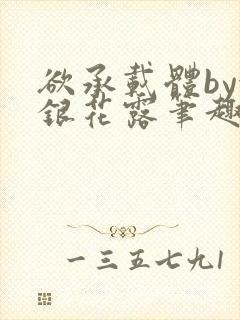 欲承載體by
銀花露筆趣
一三五七九1